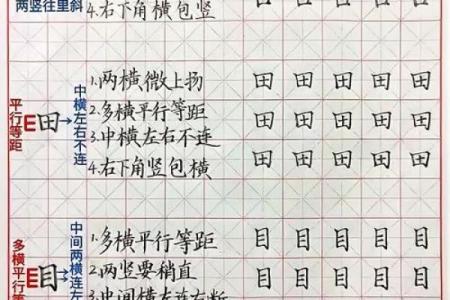 两竖往里斜
4.右下角横包竖
田 田 田 田 田
1.两横微上扬 田 田 田 田 田
平行等距
E田→
中横左右不连
2.多横平行等距 田 田 田 田 田
3.中横左右不连
4.右下角竖包横 田 田 田 田 田
1.多横平行等距 目 目 目 目 目
多横平行等
E目→
中间两横连左
2.两竖要稍直 目 目 目 目 目
3.中间横左连右断